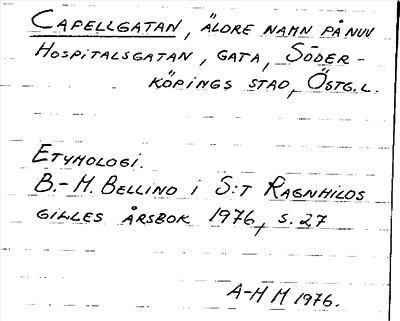 CAPELLGATAN, ÄLDRE NAMN PÅ NUV
HOSPITALSGATAN, GATA, SÖDER-
KÖPINGS STAD, ÖSTG.L.
ETYMOLOGI.
B.-M. BELLIND i S:T RAGNHILDS
GILLES ÅRSBOK 1976, S. 27
A-M M 1976.